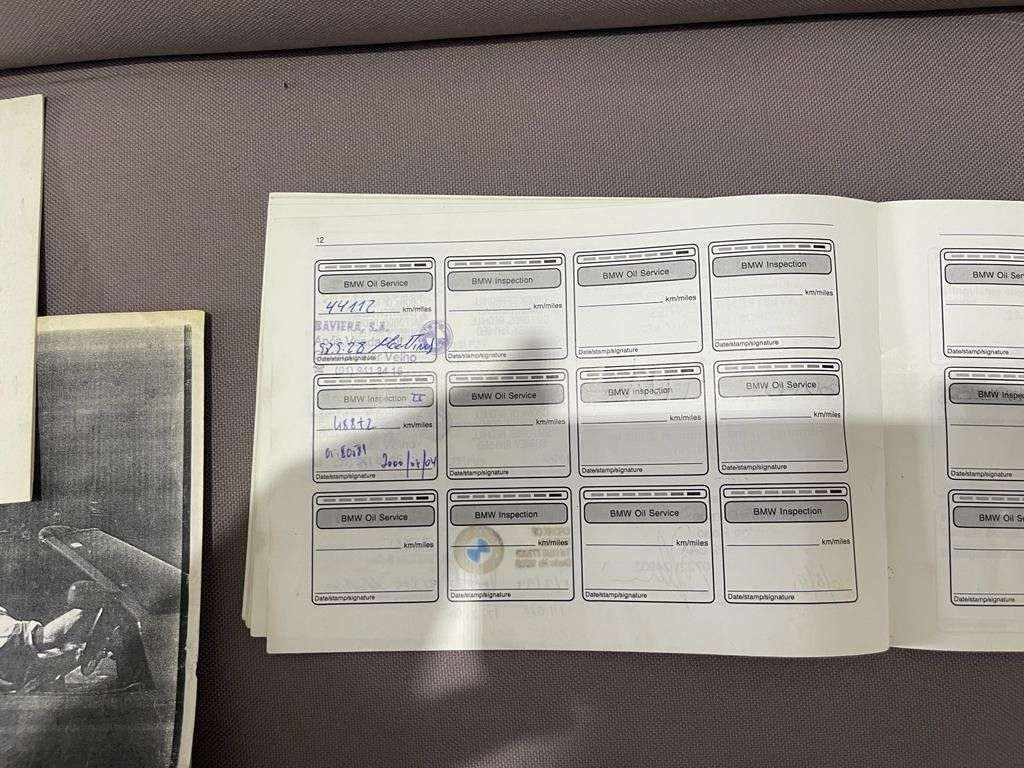 12
BMW Oil Service
44112 km/miles
BAVIERA, S.A.
Velho
Date/stamp/signature
BMW Inspection
km/miles
Date/stamp/signature
BMW Oil Service
km/miles
Date/stamp/signature
BMW Inspection
km/miles
Date/stamp/signature
BMW Oil Ser
Date/stamp/signature
BMW Inspection II
48872 km/miles
Date/stamp/signature
BMW Oil Service
km/miles
Date/stamp/signature
BMW Inspection
km/miles
Date/stamp/signature
BMW Oil Service
km/miles
Date/stamp/signature
BMW Inspe
Date/stamp/signature
BMW Oil Service
km/miles
Date/stamp/signature
BMW Inspection
km/miles
Date/stamp/signature
BMW Oil Service
km/miles
Date/stamp/signature
BMW Inspection
km/miles
Date/stamp/signature
BMW Oil S
Date/stamp/signature